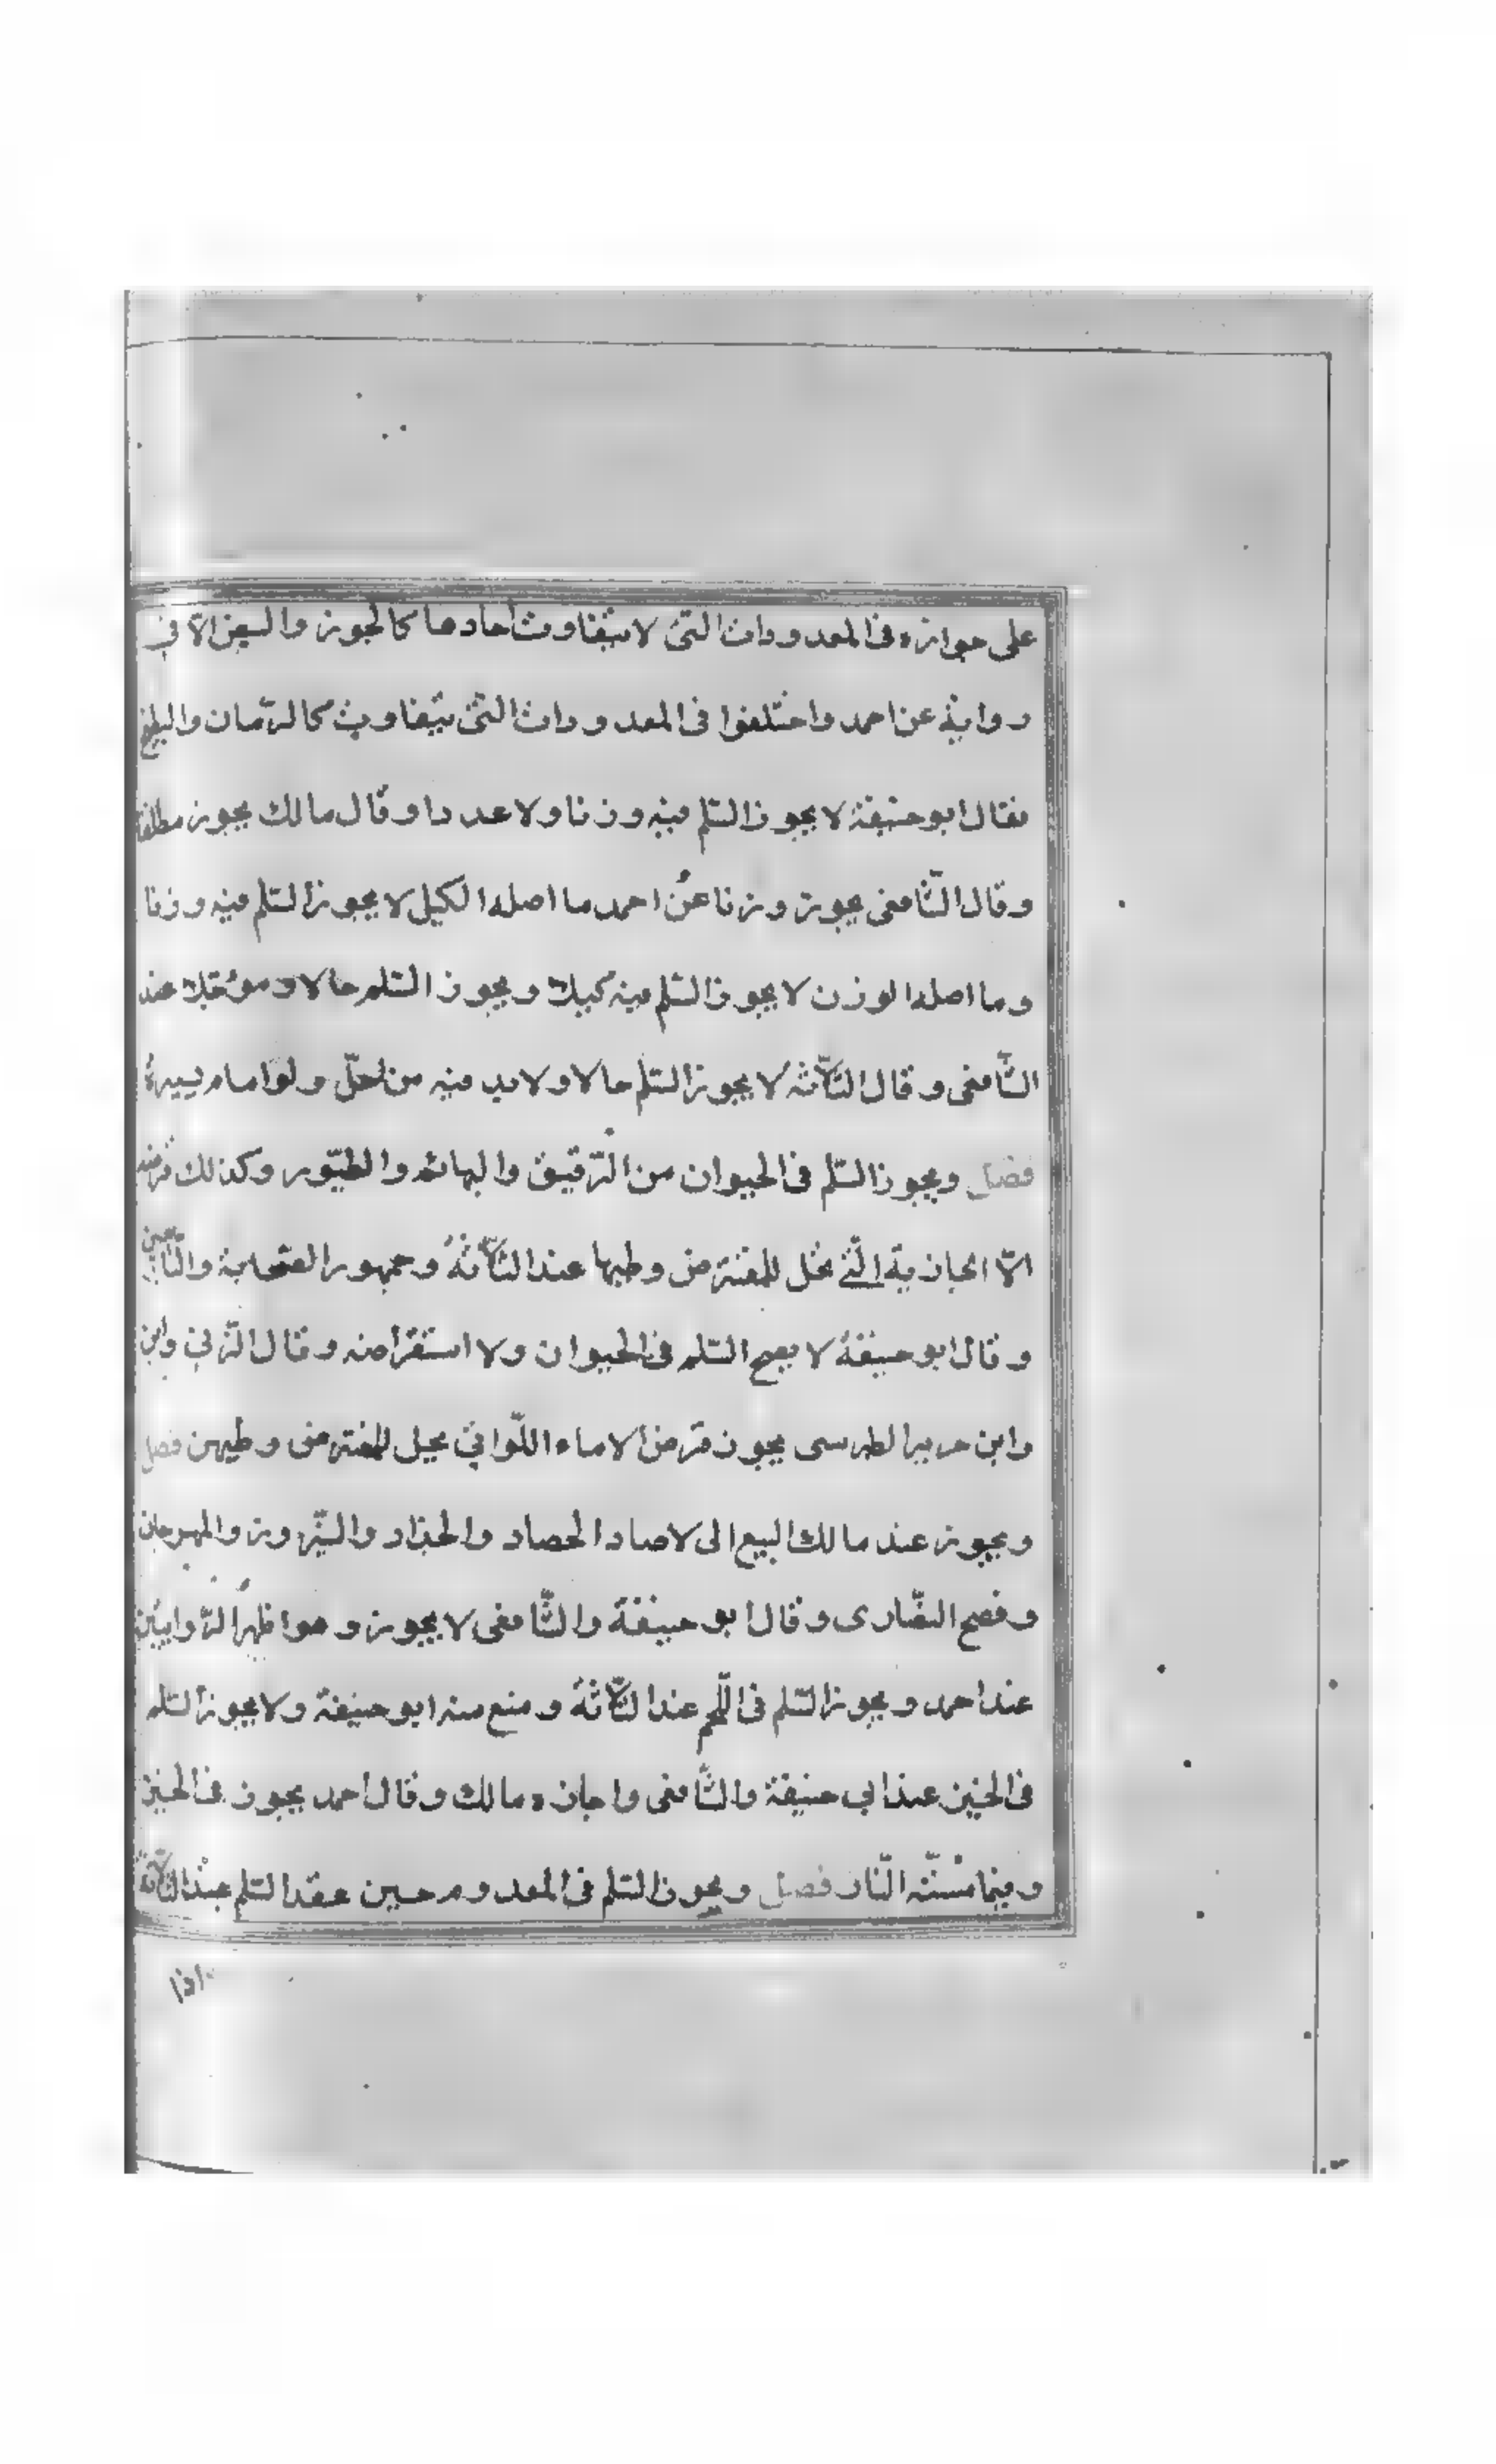 على جوازه فى المعدودات التى لا يتفاوت احادها كالجوز والبيض الا فى
رواية عن احمد واختلفوا فى المعدودات التى يتفاوت كالرمان والبطيخ
فقال ابو حنيفة لا يجوز السّلم فيه وزنا ولا عددا وقال مالك يجوز مطلقا
وقال الشّافعى يجوز وزنا عن احمد ما اصله الكيل لا يجوز السّلم فيه وزنا
وما اصله الوزن لا يجوز السّلم فيه كيلا ويجوز السّلم حالا ومؤجلا عند
الشّافعى وقال الثّلاثة لا يجوز السّلم حالا ولا بد فيه من اجل ولو ايام يسيرة
فصل ويجوز السّلم فى الحيوان من الرّقيق والبهائم والطّيور وكذلك قرضه
الّا الجازية الّتى تحل للمقترض وطيها عند الثّلاثة وجمهور الصّحابة والتّابعين
وقال ابو حنيفة لا يصح السّلم فى الحيوان ولا استقراضه وقال المزنى وابن
وابن جرير الطبرسى يجوز قرض الاماء اللّواتى يحل للمقترض وطيهن فصل
ويجوز عند مالك البيع الى لاصاد الحصاد والجذاد والنّيروز والمهرجان
وفصح النصّارى وقال ابو حنيفة والشّافعى لا يجوز وهو اظهر الرّوايتين
عند احمد ويجوز السّلم فى اللّحم عند الثّلاثة ومنع منه ابو حنيفة ولا يجوز السّلم
فى الخبز عند ابى حنيفة والشّافعى واجازه مالك وقال احمد يجوز فى الخبز
وفيما مسّته النّار فصل ويجوز السّلم فى المعدوم حين عقد السّلم عند الثّلاثة
اذا